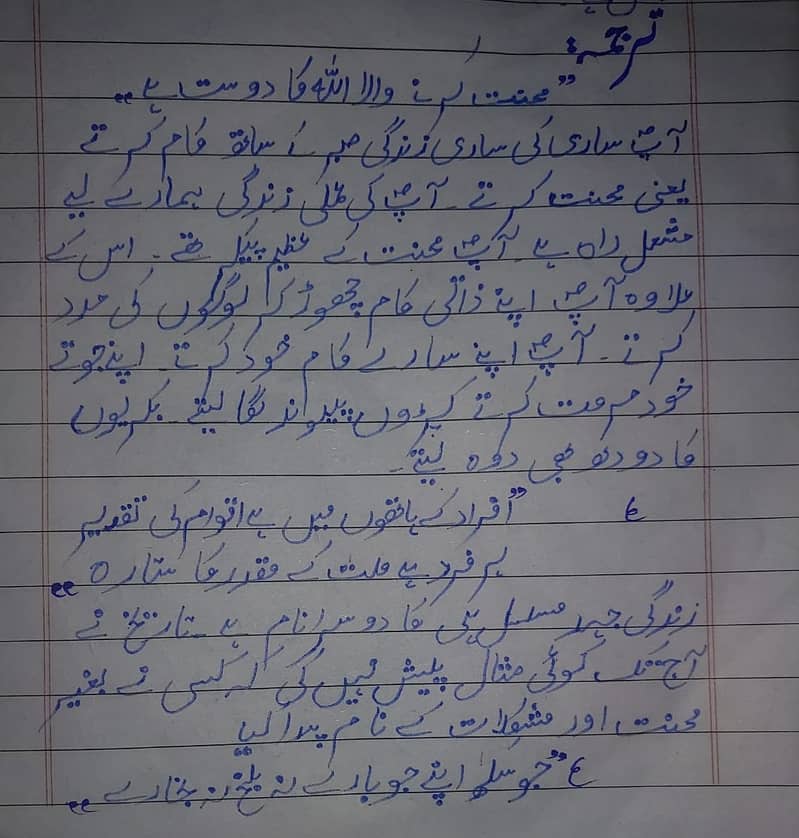 ترجمہ:
"محنت کرنے والا اللہ کا دوست ہے"
آپؐ ساری کی ساری زندگی صبر کے ساتھ کام کرتے
یعنی محنت کرتے۔ آپؐ کی عملی زندگی ہمارے لیے
مشعل راہ ہے۔ آپؐ محنت کے عظیم پیکر تھے۔ اس کے
علاوہ آپؐ اپنے ذاتی کام چھوڑ کر لوگوں کی مدد
کرتے۔ آپؐ اپنے سارے کام خود کرتے۔ اپنے جوتے
خود مرمت کرتے کپڑوں پیوند لگا لیتے۔ بکریوں
کا دودھ بھی دوہ لیتے۔
ع "افراد کے ہاتھوں میں ہے اقوام کی تقدیر
ہر فرد ہے ملت کے مقدر کا ستارہ"
زندگی جہد مسلسل ہی کا دوسرا نام ہے۔ تاریخ نے
آج تک کوئی مثال پیش نہیں کی کہ کسی نے بغیر
محنت اور مشکلات کے نام پیدا کیا
ع "جو اپنے جو بارے نہ بلخ نہ بخارے"